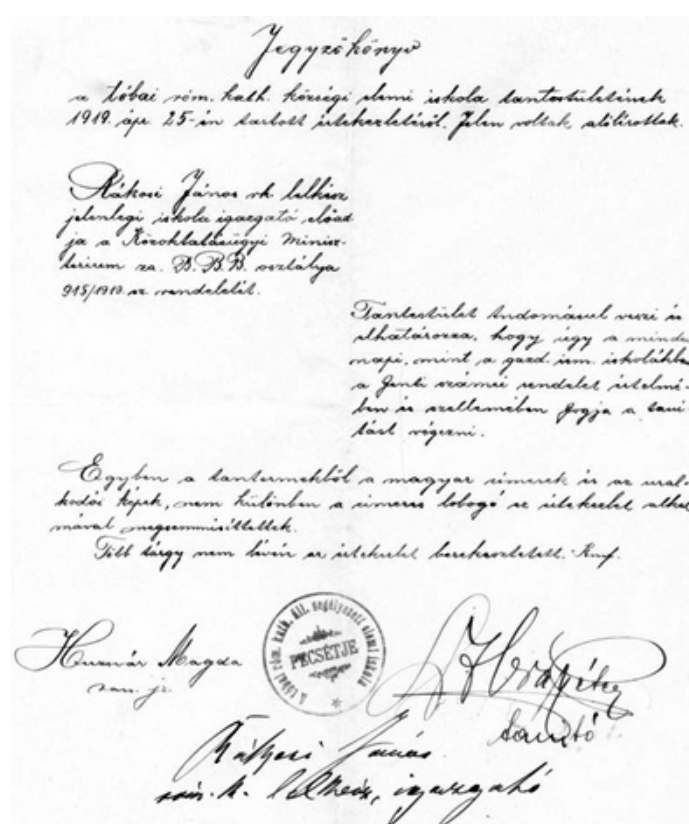 Jegyzőkönyv
a tóbai róm. kath. községi elemi iskola tantestületének
1919. ápr 25-én tartott értekezletéről. Jelen voltak alólírottak.
Rákosi János rk. lelkész
jelenlegi iskola igazgató előad
ja a Közoktatásügyi Minisz-
térium za. B.B.B. osztálya
915/1919 sz rendeletét.
Tantestület tudomásul veszi és
elhatározza, hogy úgy a minden
napi, mint a gazd. ism. iskolákban
a fenti számú rendelet értelmé-
ben és szellemében fogja a taní
tást végezni.
Egyben a tantermekből a magyar címerek és az ural-
kodói képek, nem különben a címeres lobogó ez értekezlet alkal
mával megsemmisíttettek.
Több tárgy nem lévén az értekezlet berekesztetett. Kmf.
A tóbai róm. kath. áll. segélyezett elemi iskola
PECSÉTJE
Huszár Magda
tanító
Rákosi János
róm. k. lelkész, igazgató